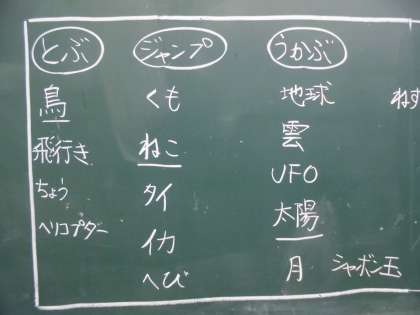 とぶ
鳥
飛行き
ちょう
ヘリコプター
ジャンプ
くも
ねこ
タイ
イカ
へび
うかぶ
地球
雲
UFO
太陽
月
シャボン玉
ねず